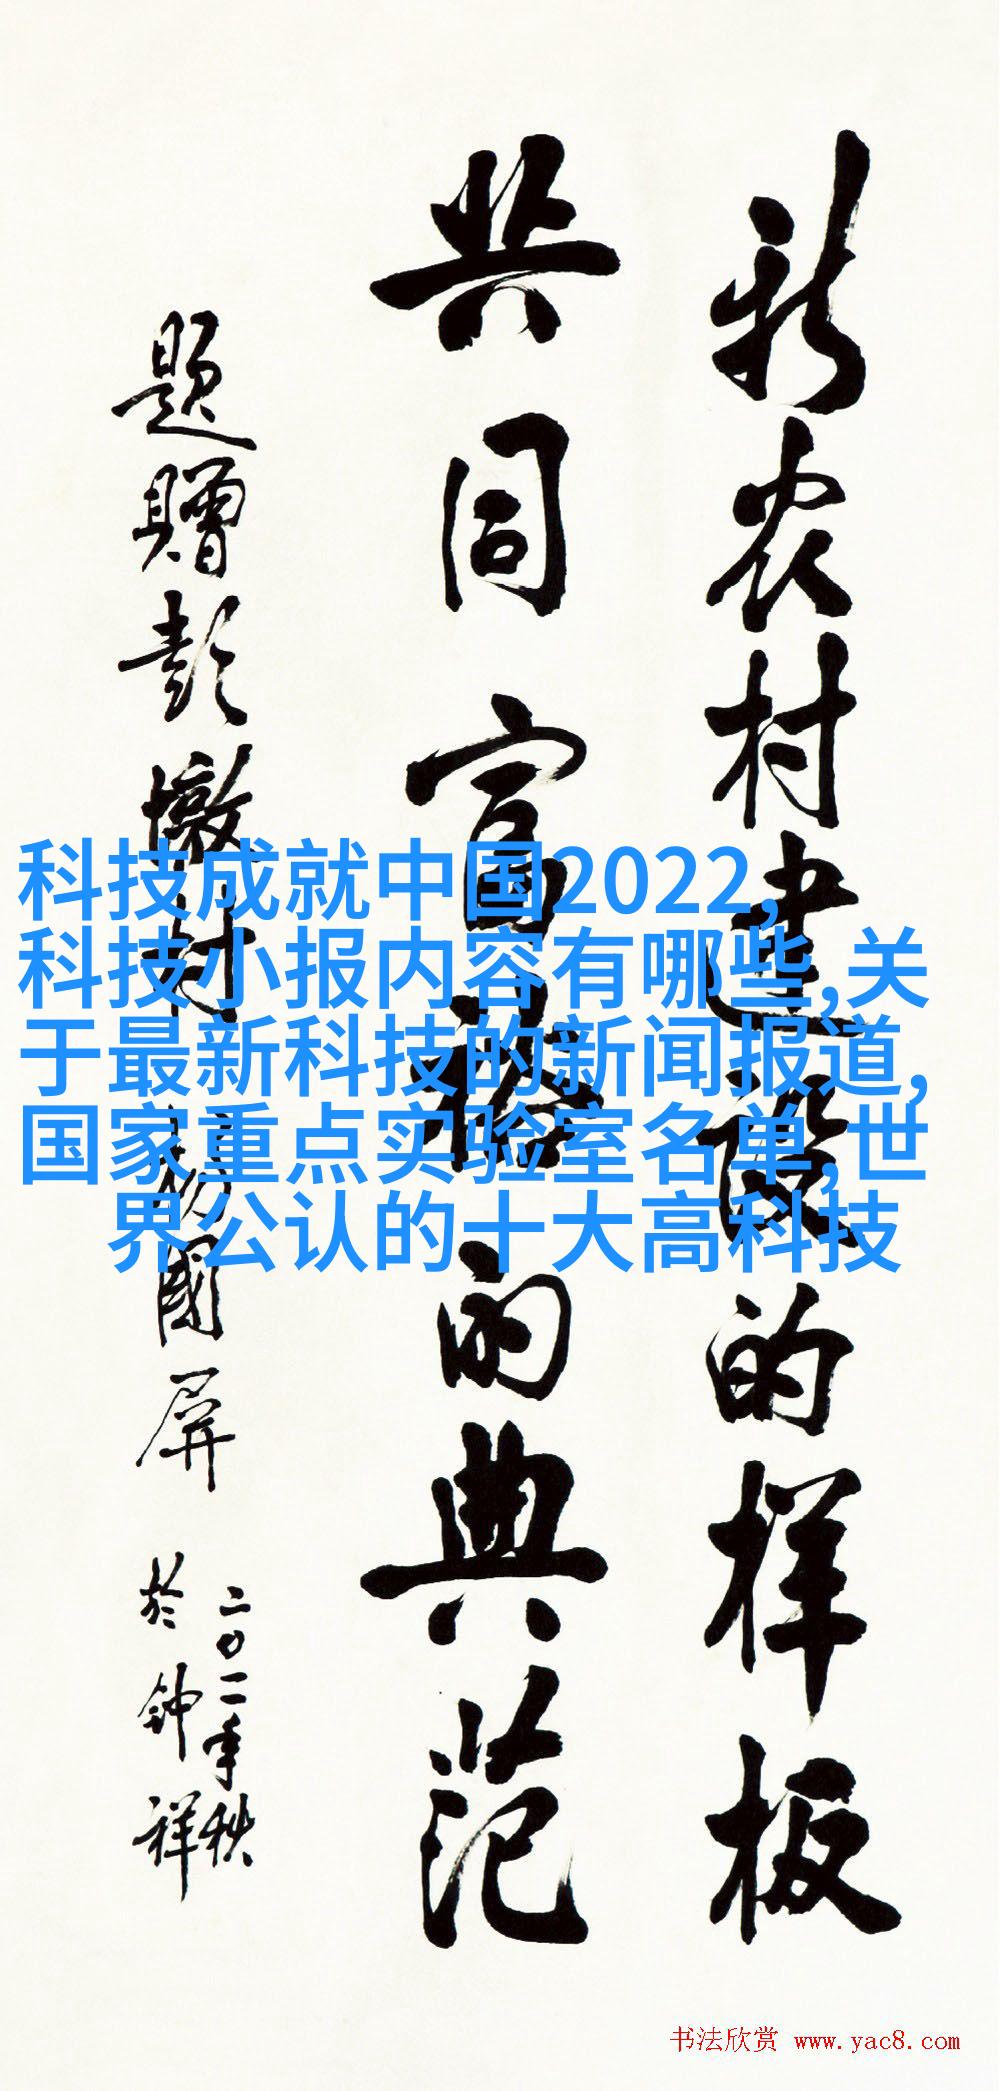 新农村建设的样板
共同富裕的典范
题赠彭墩村
国屏
二〇一一年秋
於钟祥
科技成就中国2022,
科技小报内容有哪些,关
于最新科技的新闻报道,
国家重点实验室名单,世
界公认的十大高科技
书法欣赏 www.yac8.com